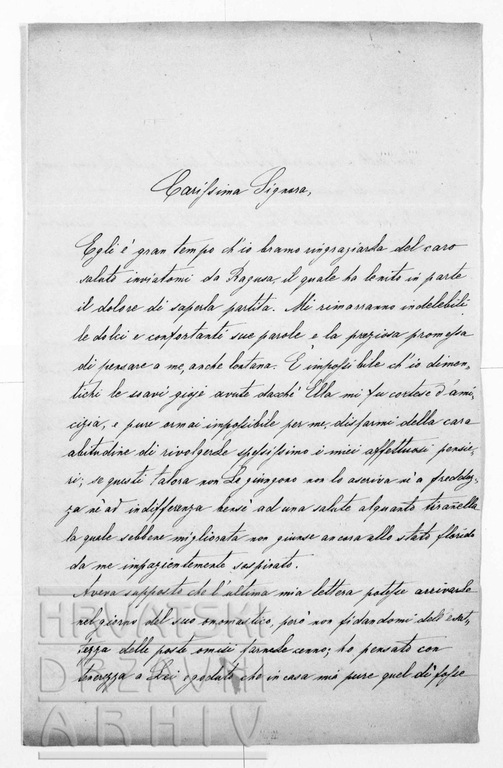 Carissima Signora,
Egli è gran tempo ch'io bramo ringraziarla del caro
saluto inviatomi da Ragusa, il quale ha lenito in parte
il dolore di saperla partita. Mi rimarranno indelebili
le dolci e confortanti sue parole e la preziosa promessa
di pensare a me, anche lontana. È impossibile ch'io dimen-
tichi le soavi gioje avute dacchè Ella mi fu cortese d'ami-
cizia, e pure ormai impossibile per me, disfarmi della cara
abitudine di rivolgerle spessissimo i miei affettuosi pensie-
ri; se questi talora non Le giungono non lo ascriva nè a freddez-
za nè ad indifferenza bensè ad una salute alquanto tiranella
la quale sebbene migliorata non giunse ancora allo stato florido
da me impazientemente sospirato.
Aveva supposto che l'ultima mia lettera potesse arrivarle
nel giorno del suo onomastico, però non fidandomi dell'esat-
tezza delle poste omisi farnele cenno; ho pensato con
tenerezza a Lei e goduto che in casa mia pure quel dì fosse
HRVATSKI
DRŽAVNI
ARHIV